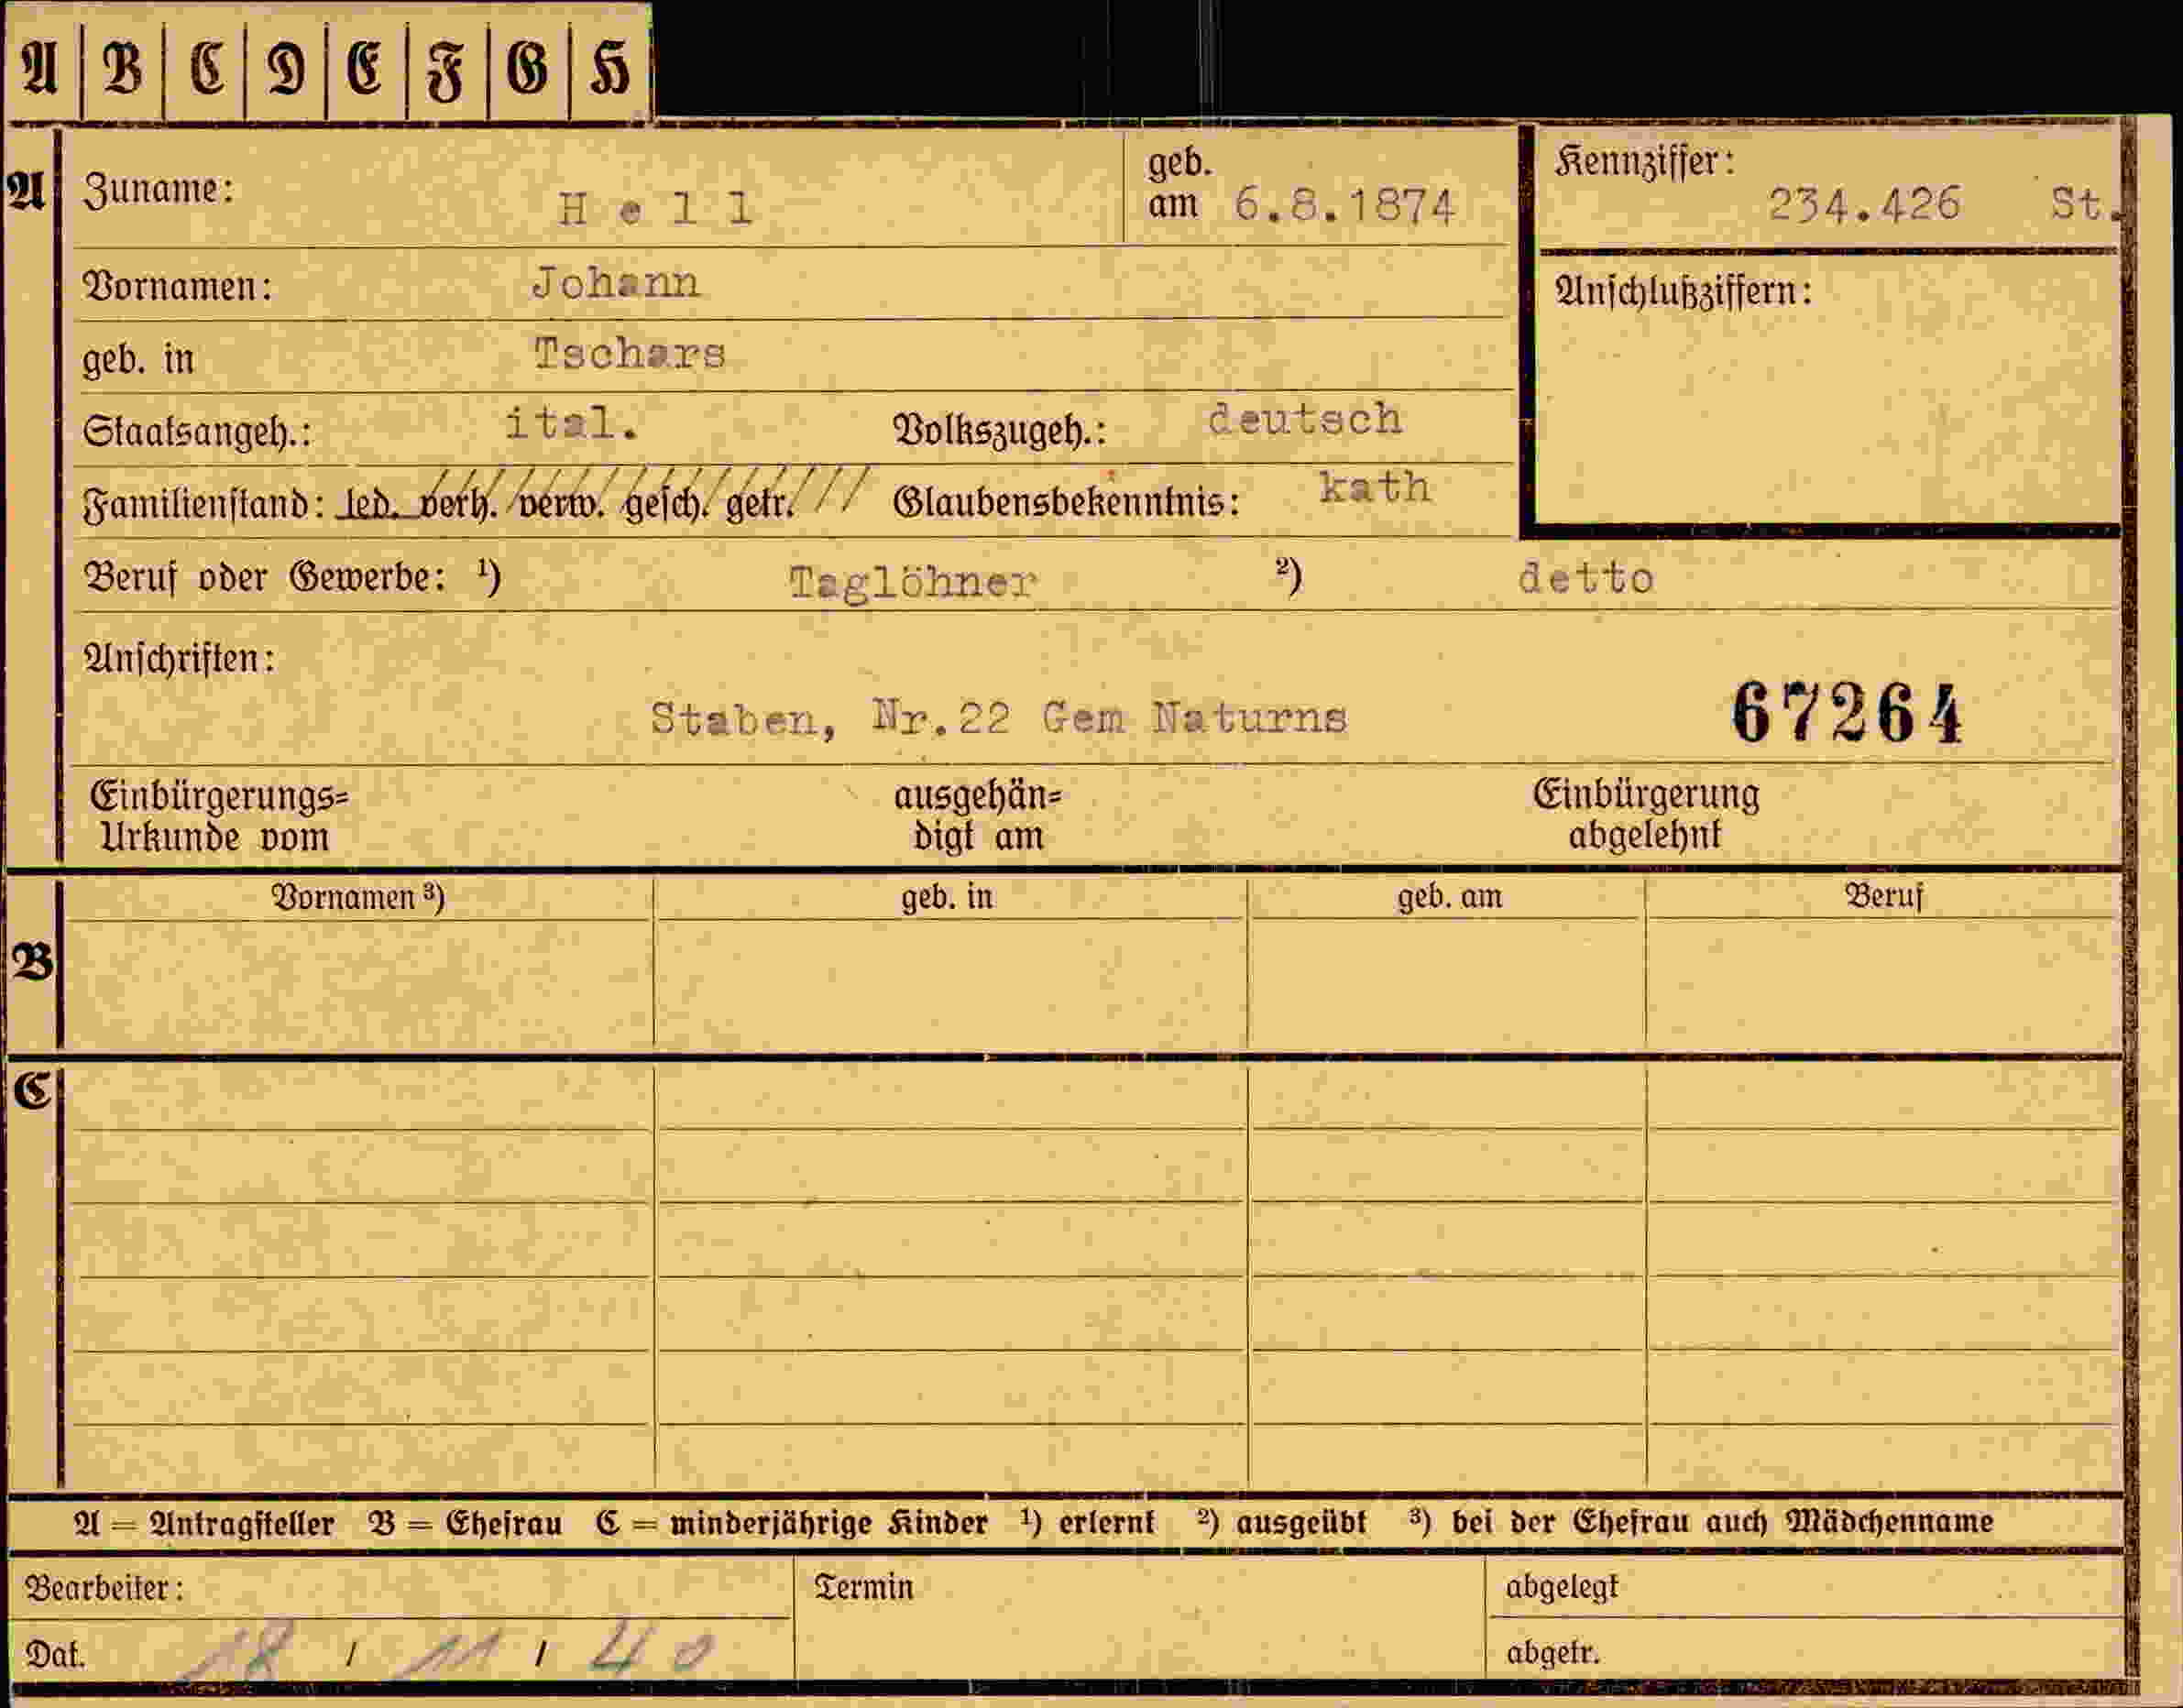 A B C D E F G H
A Zuname: Hell geb. am 6.8.1874 Kennziffer: 234.426 St.
Vornamen: Johann Anschlußziffern:
geb. in Tschars
Staatsangeh.: ital. Volkszugeh.: deutsch
Familienstand: led. verh. verw. gesch. getr. Glaubensbekenntnis: kath
Beruf oder Gewerbe: ¹) Taglöhner ²) detto
Anschriften:
Staben, Nr.22 Gem Naturns 67264
Einbürgerungs= ausgehän= Einbürgerung
Urkunde vom digt am abgelehnt
Vornamen ³) geb. in geb. am Beruf
B
C
A = Antragsteller B = Ehefrau C = minderjährige Kinder ¹) erlernt ²) ausgeübt ³) bei der Ehefrau auch Mädchenname
Bearbeiter: Termin abgelegt
Dat. 18 / 11 / 40 abgetr.